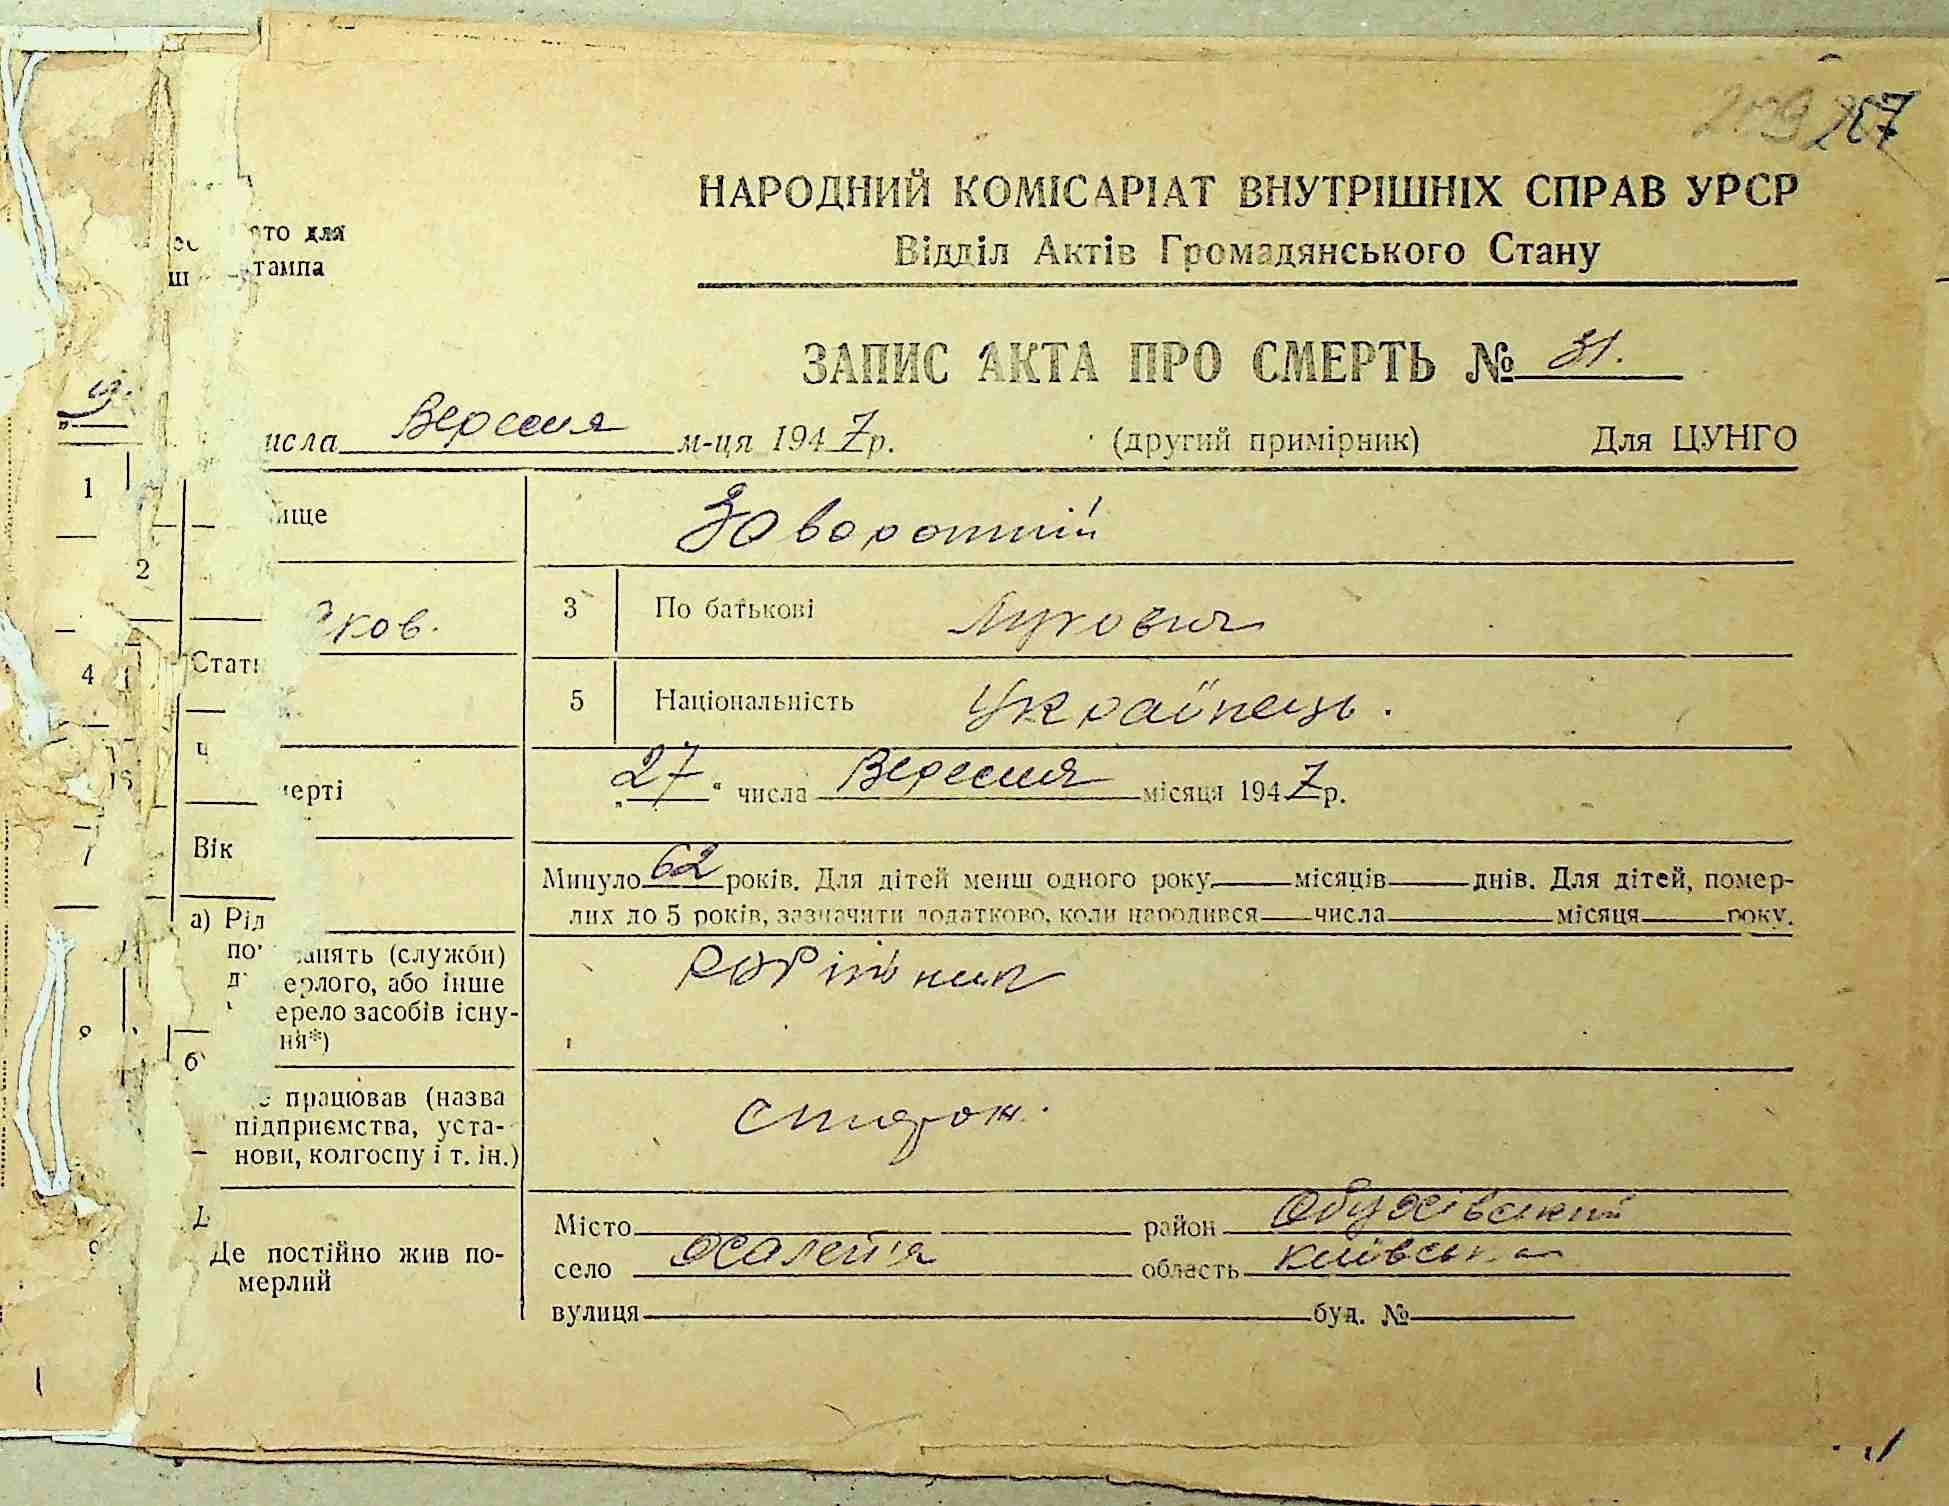 267
НАРОДНИЙ КОМІСАРІАТ ВНУТРІШНІХ СПРАВ УРСР
Відділ Актів Громадянського Стану
то для
тампа
ЗАПИС АКТА ПРО СМЕРТЬ № 31.
исла Вересня м-ця 1947 р. (другий примірник) Для ЦУНГО
1
ище
2
ков. 3 По батькові Лукович
4 5 Національність Українець.
мерті „27“ числа Вересня місяця 1947 р.
7 Вік Минуло 62 років. Для дітей менш одного року місяців днів. Для дітей, помер-
лих до 5 років, зазначити додатково, коли народився числа місяця року.
а) Рід
занять (служби)
ерлого, або інше
ерело засобів існу-
ня*)
б
працював (назва
підприємства, уста-
нови, колгоспу і т. ін.)
Місто район Обухівський
Де постійно жив по-
мерлий
село область Київська
вулиця буд. №